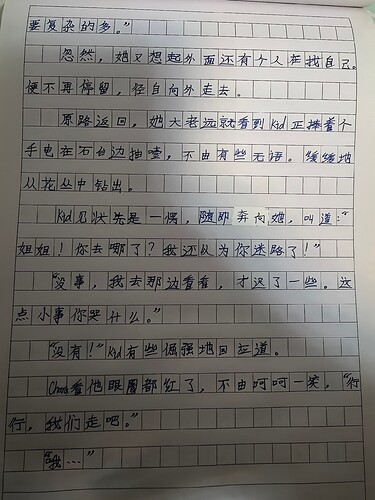 要复杂的多。”
忽然，她又想起外面还有个人在找自己。
便不再停留，径自向外走去。
原路返回，她大老远就看到Kid正捧着个
手电在石台边抽噎，不由有些无语。缓缓地
从花丛中钻出。
Kid见状先是一愣，随即奔向她，叫道：“
姐姐！你去哪了？我还以为你迷路了！”
“没事，我去那边看看，才迟了一些。这
点小事你哭什么。”
“没有！”Kid有些倔强地回应道。
Chara看他眼圈都红了，不由呵呵一笑，“行
行，我们走吧。”
“我…”